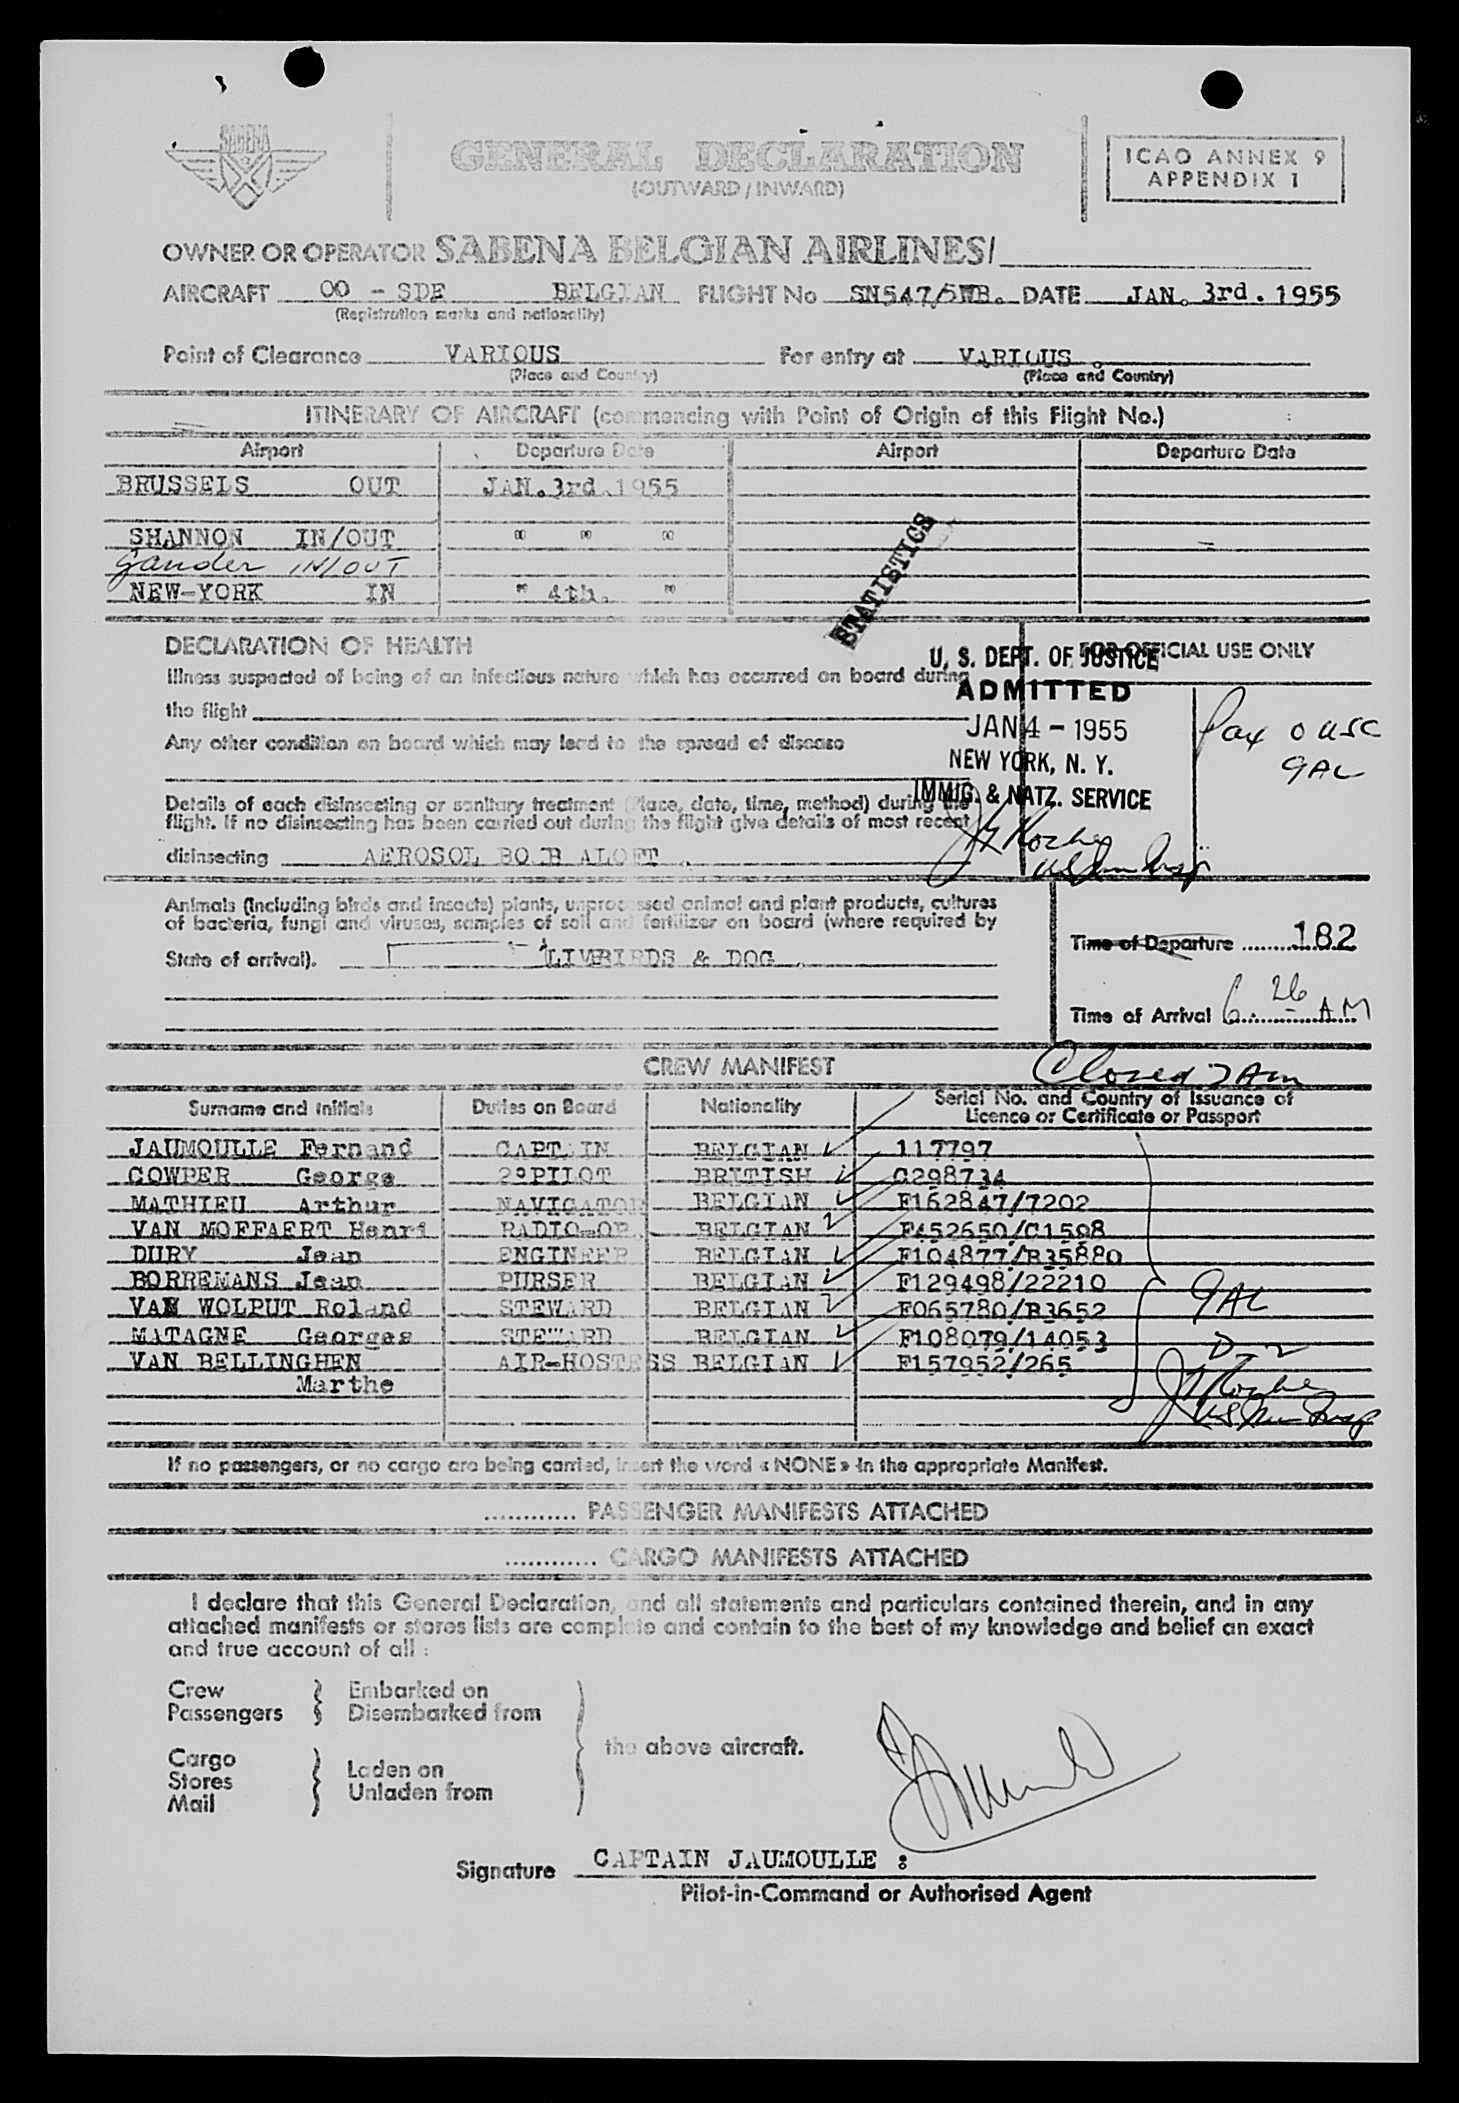 SABENA
GENERAL DECLARATION
(OUTWARD / INWARD)
ICAO ANNEX 9
APPENDIX 1
OWNER OR OPERATOR SABENA BELGIAN AIRLINES/
AIRCRAFT OO - SDE BELGIAN FLIGHT No SN547/5WB. DATE JAN. 3rd. 1955
(Registration marks and nationality)
Point of Clearance VARIOUS For entry at VARIOUS .
(Place and Country) (Place and Country)
ITINERARY OF AIRCRAFT (commencing with Point of Origin of this Flight No.)
Airport Departure Date Airport Departure Date
BRUSSELS OUT JAN.3rd.1955
SHANNON IN/OUT " " "
Gander IN/OUT
NEW-YORK IN " 4th. "
STATISTICS
DECLARATION OF HEALTH
FOR OFFICIAL USE ONLY
Illness suspected of being of an infectious nature which has occurred on board during
the flight
Any other condition on board which may lead to the spread of disease
Details of each disinsecting or sanitary treatment (Place, date, time, method) during the
flight. If no disinsecting has been carried out during the flight give details of most recent
disinsecting AEROSOL BO B ALOFT .
U. S. DEPT. OF JUSTICE
ADMITTED
JAN 4 - 1955
NEW YORK, N. Y.
IMMIG. & NATZ. SERVICE
Pax 0 USC
9 AL
Animals (Including birds and insects) plants, unprocessed animal and plant products, cultures
of bacteria, fungi and viruses, samples of soil and fertilizer on board (where required by
State of arrival). LIVEBIRDS & DOG .
Time of Departure 182
Time of Arrival 6 26 AM
Closed 7 Am
CREW MANIFEST
Surname and Initials Duties on Board Nationality Serial No. and Country of Issuance of
Licence or Certificate or Passport
JAUMOULLE Fernand CAPTAIN BELGIAN 117797
COWPER George 2°PILOT BRITISH C298734
MATHIEU Arthur NAVIGATOR BELGIAN F162847/7202
VAN MOFFAERT Henri RADIO-OP. BELGIAN F452650/C1598
DURY Jean ENGINEER BELGIAN F104877/B35880
BORREMANS Jean PURSER BELGIAN F129498/22210
VAN WOLPUT Roland STEWARD BELGIAN F065780/B3652
MATAGNE Georges STEWARD BELGIAN F108079/14053
VAN BELLINGHEN AIR-HOSTESS BELGIAN F157952/265
Marthe
9 AL
If no passengers, or no cargo are being carried, insert the word « NONE » in the appropriate Manifest.
............ PASSENGER MANIFESTS ATTACHED
............ CARGO MANIFESTS ATTACHED
I declare that this General Declaration, and all statements and particulars contained therein, and in any
attached manifests or stores lists are complete and contain to the best of my knowledge and belief an exact
and true account of all :
Crew Embarked on
Passengers Disembarked from
the above aircraft.
Cargo
Stores Laden on
Mail Unladen from
Signature CAPTAIN JAUMOULLE :
Pilot-in-Command or Authorised Agent